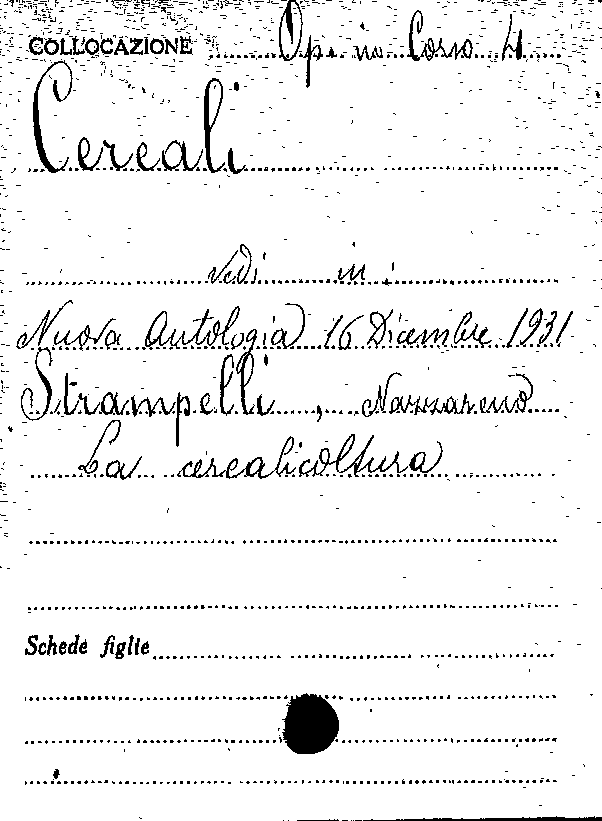 COLLOCAZIONE Op. in Corso 4
Cereali
vedi in :
Nuova Antologia 16 Dicembre 1931
Strampelli , Nazzareno
La cerealicoltura
Schede figlie